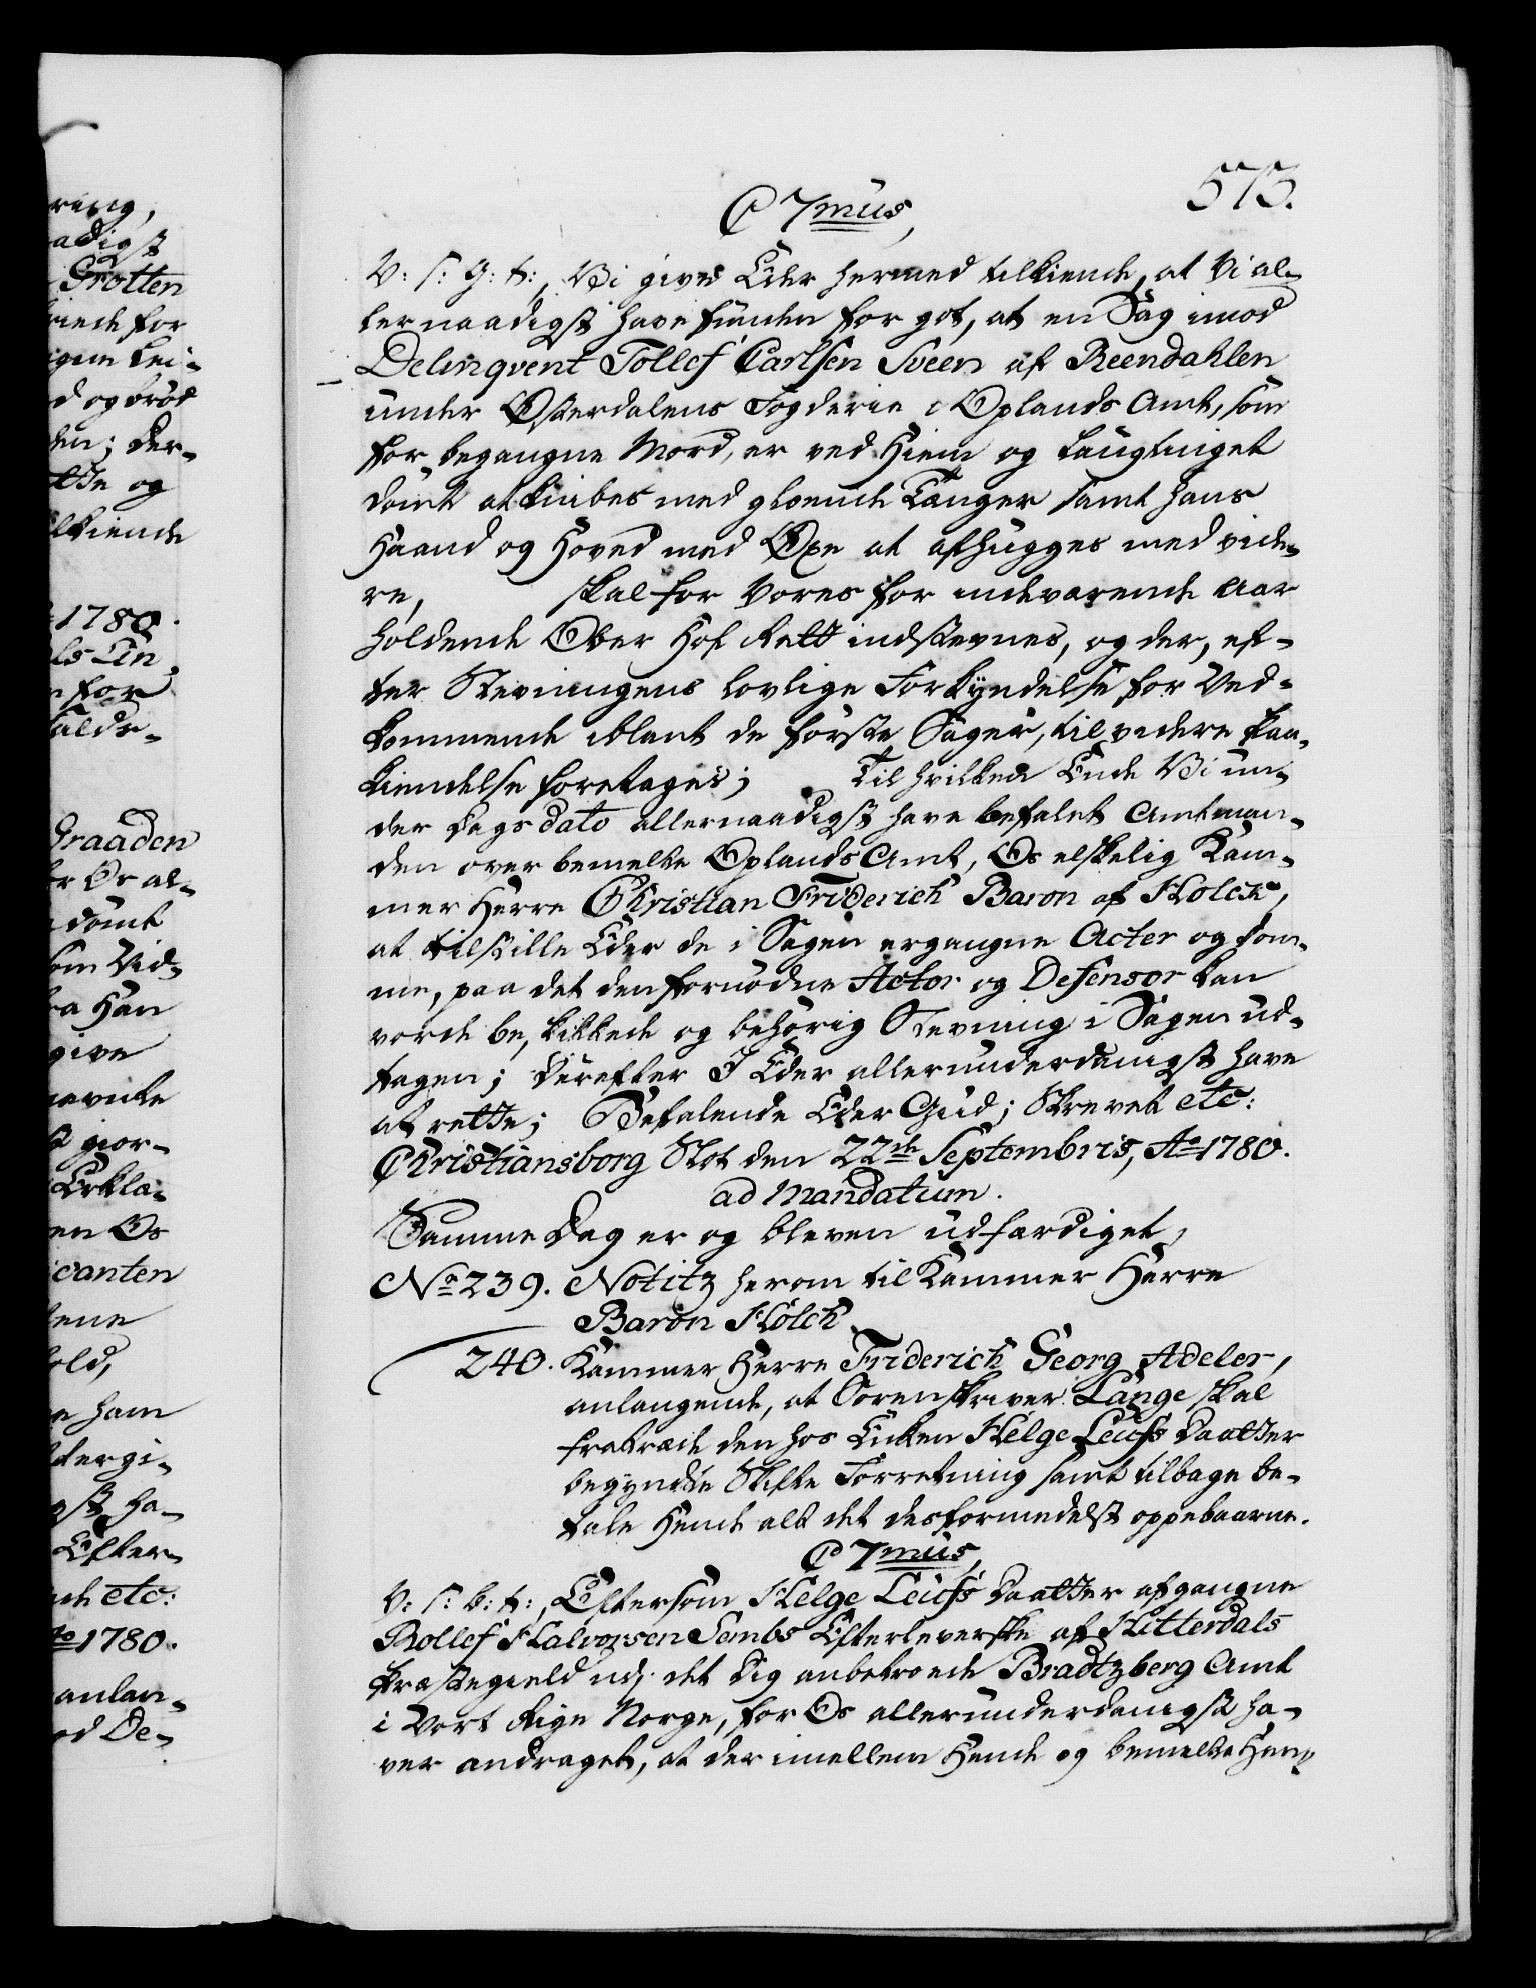 573.
C 7mus,
V: S: G: t:, Vi give Eder hermed tilkiende, at Vi al-
lernaadigst have funden for got, at en Sag imod
Delinqvent Tollef Carlsen Sveen af Reendahlen
under Østerdalens Fogderie i Oplands Amt, som
for begangne Mord, er ved Hiem og Laugtinget
dømt at knibes med gloende Tænger samt hans
Haand og Hoved med Øxe at afhugges med vide-
re, skal for Vores for indeværende Aar
holdende Ober Hof Rett indstevnes, og der, ef-
ter Stevningens lovlige Forkyndelse for Ved-
kommende iblant de første Sager, til videre Paa-
kiendelse foretages; Til hvilken Ende Vi un-
der Dags dato allernaadigst have befalet Amtman-
den over bemelte Oplands Amt, Os elskelig Kam-
mer Herre Christian Friderich Baron af Holck,
at tilstille Eder de i Sagen ergangne Acter og Dom-
me, paa det den fornødne Actor og Defensor kan
vorde beskikkede og behørig Stevning i Sagen ud-
tagen; Derefter I Eder allerunderdanigst have
at rette; Befalende Eder Gud; Skrevet etc:
Christiansborg Slot den 22de Septembris, Ao 1780.
ad Mandatum.
Samme Dag er og bleven udfærdiget,
No 239. Notitz herom til Kammer Herre
Baron Holck.
240. Kammer Herre Friderich Georg Adeler,
anlangende, at Sorenskriver Lange skal
fratræde den hos Enken Helge Leufs Daatter
begyndte Skifte Forretning samt tilbage be-
tale Hende alt det desformedelst oppebaarne.
C 7mus,
V: S: B: t:, Eftersom Helge Leufs Daatter afgangne
Rollef Halvorsen Sembs Efterleverske af Hitterdals
Præstegield udj det Dig anbetroede Bradtzberg Amt
i Vort Rige Norge, for Os allerunderdanigst ha-
ver andraget, at der imellem Hende og bemelte Hen-